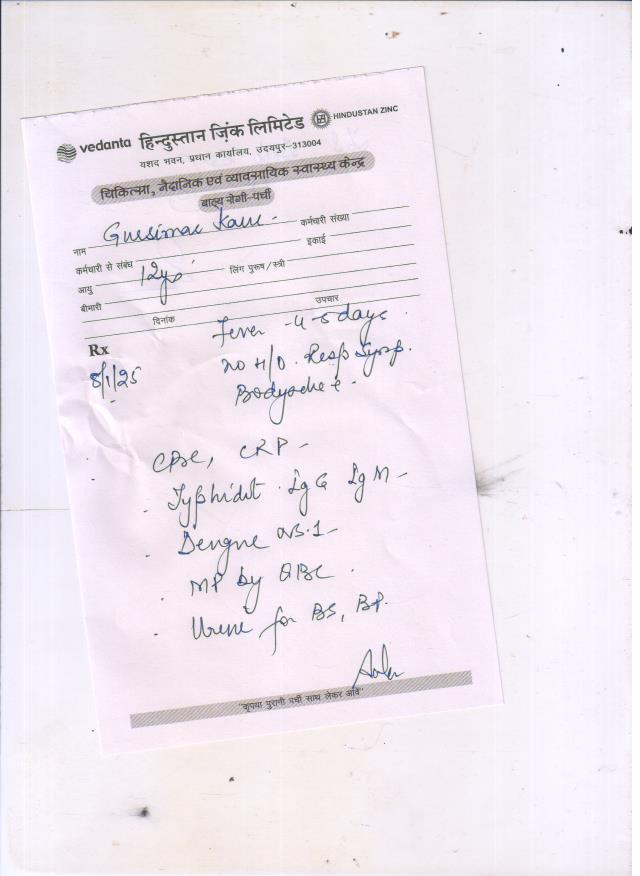 vedanta हिन्दुस्तान ज़िंक लिमिटेड HINDUSTAN ZINC
यशद भवन, प्रधान कार्यालय, उदयपुर-313004
चिकित्सा, नैदानिक एवं व्यावसायिक स्वास्थ्य केन्द्र
बाह्य रोगी-पर्ची
नाम Gursimar Kaur - कर्मचारी संख्या
कर्मचारी से संबंध इकाई
आयु 12yo लिंग पुरूष/स्त्री
बीमारी
दिनांक उपचार
Rx Fever - 4-5 days.
8/1/25 no H/O. Resp Symp.
Bodyache +.
CBC, CRP -
Typhidot. IgG IgM -
Dengue NS.1 -
MP by QBC.
Urine for BS, BP.
"कृपया पुरानी पर्ची साथ लेकर आवें"